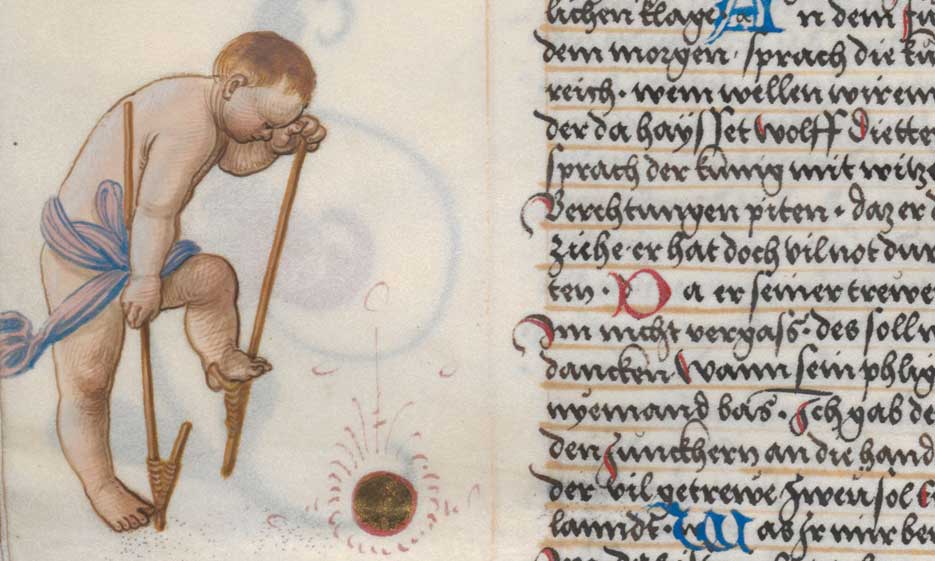 lichen klage · An dem
dem morgen · sprach die kü
reich · wem wellen wir em
der da haysset wolff Diette
sprach der künig mit witze
Berchtungen piten · daz er d
ziehe · er hat doch vil not dur
ten · Da er seiner trewe
Im nicht vergass · des soll
dancken · wann sein phlig
nyemand bas · Ich gab de
den Junckhern an die hand
der vil getrewe zwen sol
lanndt · Was Ir mir ber